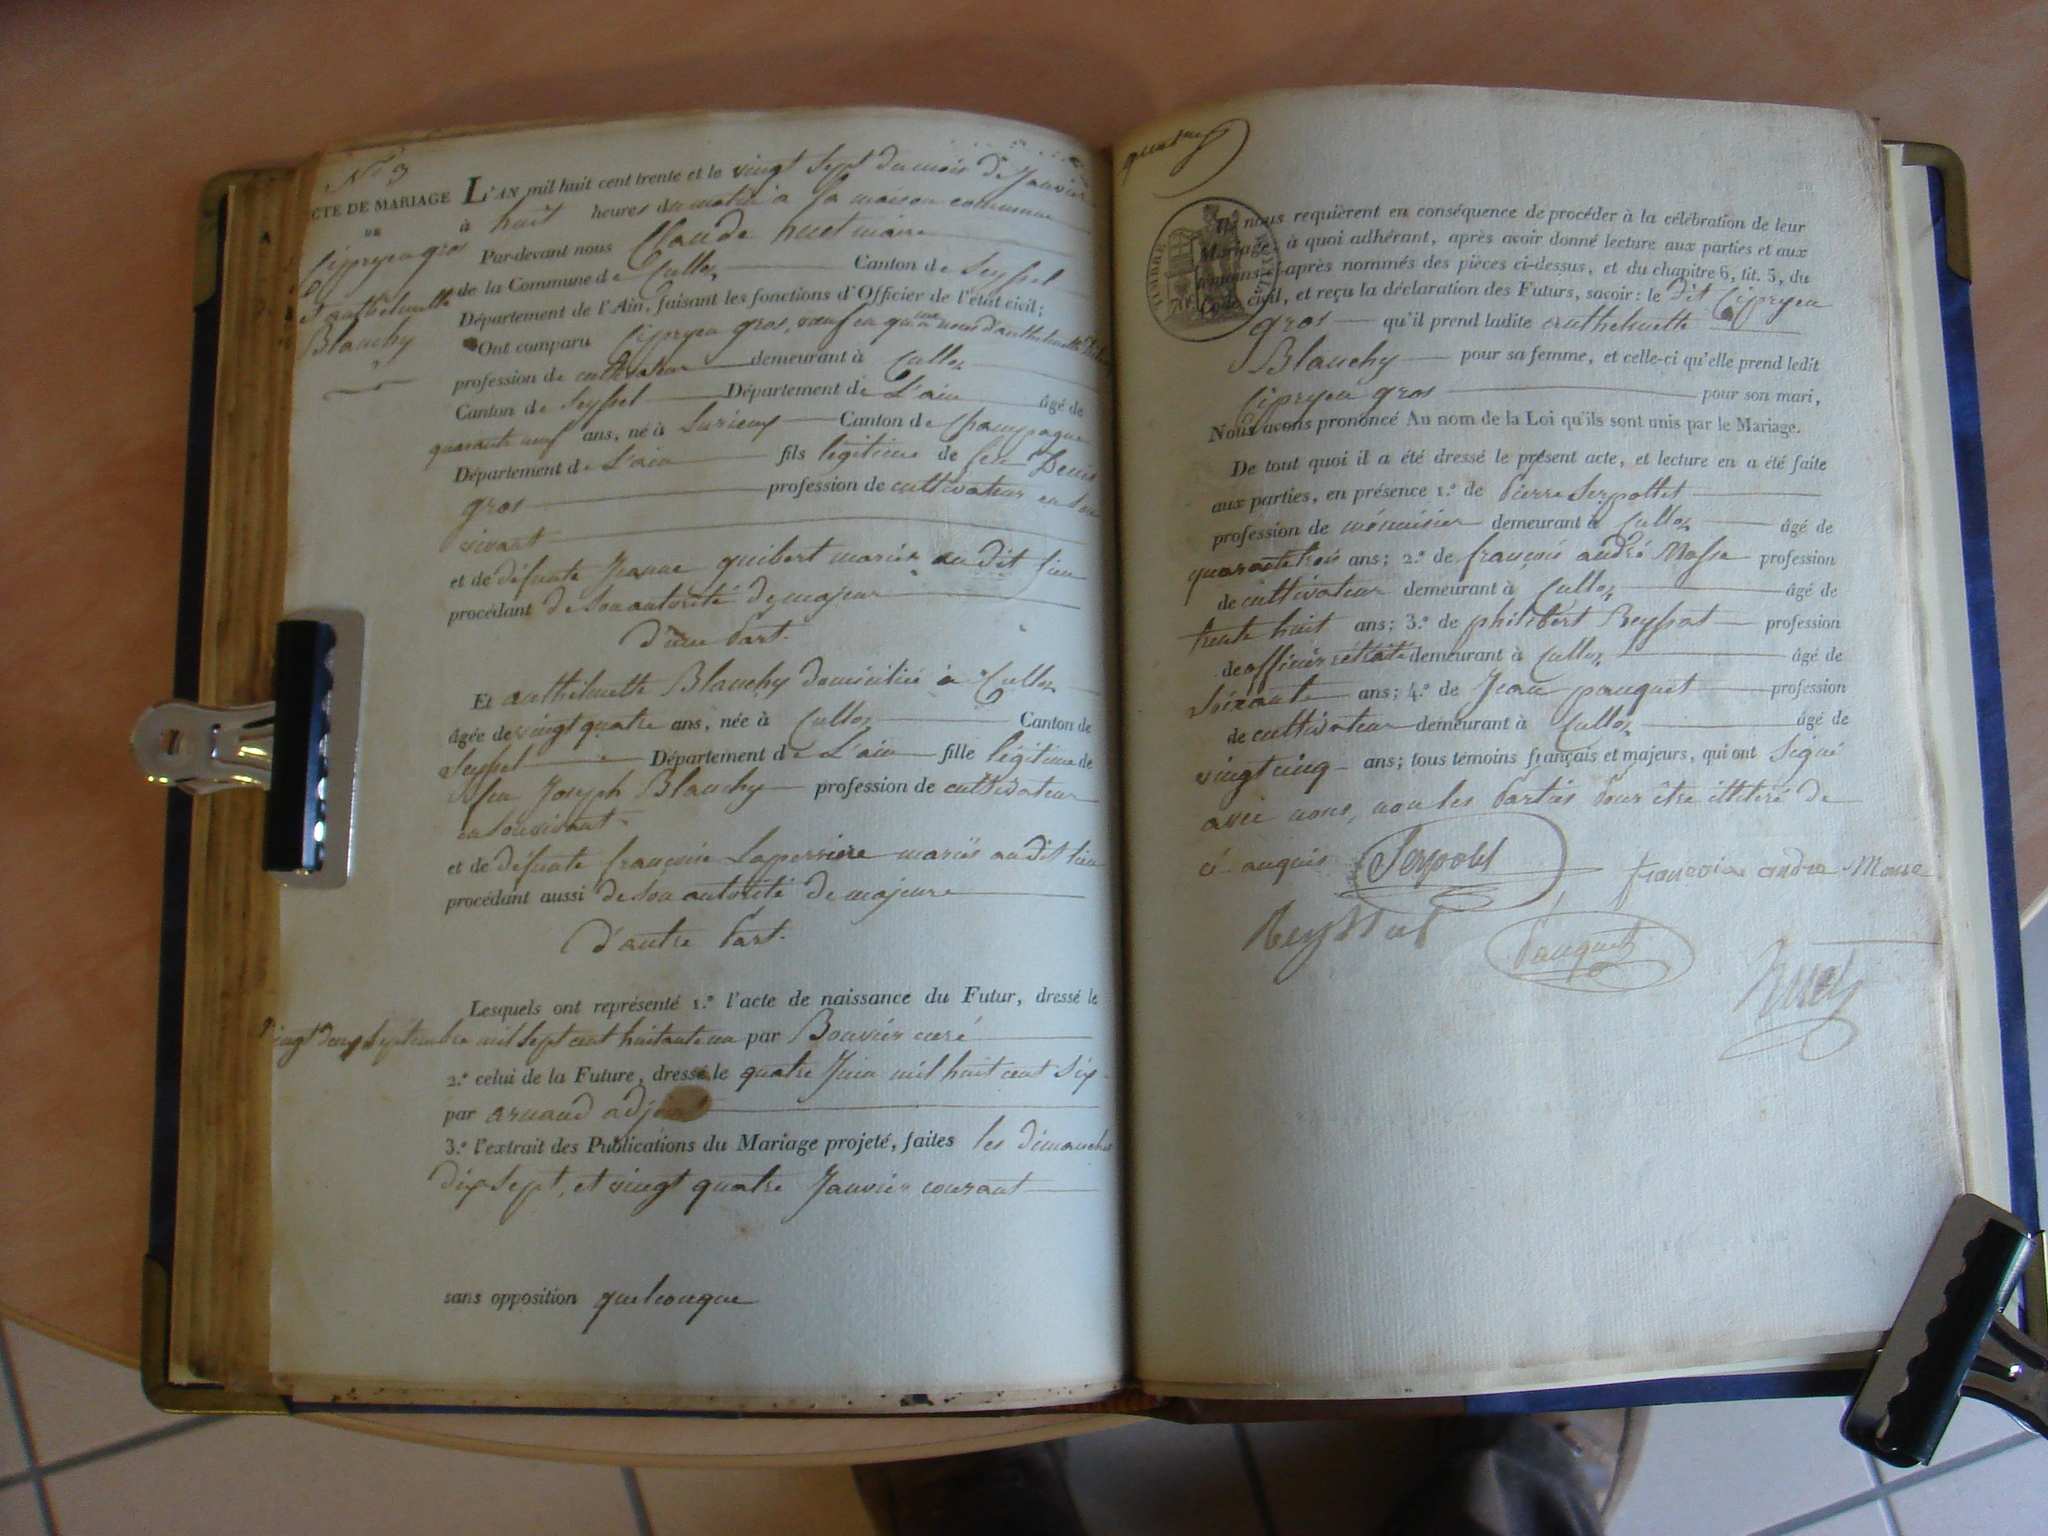 N.° 3
CTE DE MARIAGE
DE
Cipryen gros
et anthelmette
Blanchy
L'AN mil huit cent trente et le vingt sept du mois de Janvier
à huit heures du matin à la maison commune
Par-devant nous Claude huet maire
de la Commune de Culloz Canton de Seyssel
Département de l'Ain, faisant les fonctions d'Officier de l'état civil;
Ont comparu Cipryen gros, veuf en
profession de cultivateur demeurant à Culloz
Canton de Seyssel Département de L'ain âgé de
quarante neuf ans, né à Surieux Canton de Champagne
Département de L'ain fils légitime de feu Denis
gros profession de cultivateur en son
vivant
et de défunte Jeanne guibert mariés au dit lieu
procédant de son autorité de majeur
d'une Part.
Et anthelmette Blanchy domiciliée à Culloz
âgée de vingt quatre ans, née à Culloz Canton de
Seyssel Département de L'ain fille légitime de
feu Joseph Blanchy profession de cultivateur
en son vivant
et de défunte françoise Laperriere mariés au dit lieu
procédant aussi de son autorité de majeure
d'autre Part.
Lesquels ont représenté 1.° l'acte de naissance du Futur, dressé le
vingt deux septembre mil sept cent huitante un par Bouvier curé
2.° celui de la Future, dressé le quatre Juin mil huit cent six
par arnaud adjoint
3.° l'extrait des Publications du Mariage projeté, faites les dimanches
dix sept, et vingt quatre Janvier courant
sans opposition quelconque
TIMBRE ROYAL
70
Ils nous requièrent en conséquence de procéder à la célébration de leur
Mariage, à quoi adhérant, après avoir donné lecture aux parties et aux
témoins ci-après nommés des pièces ci-dessus, et du chapitre 6, tit. 5, du
Code civil, et reçu la déclaration des Futurs, savoir: le dit Cipryen
gros qu'il prend ladite anthelmette
Blanchy pour sa femme, et celle-ci qu'elle prend ledit
Cipryen gros pour son mari,
Nous avons prononcé Au nom de la Loi qu'ils sont unis par le Mariage.
De tout quoi il a été dressé le présent acte, et lecture en a été faite
aux parties, en présence 1.° de Pierre Serpollet
profession de ménuisier demeurant à Culloz âgé de
quarante trois ans; 2.° de françois andré Masse profession
de cultivateur demeurant à Culloz âgé de
trente huit ans; 3.° de philibert Reyssat profession
de officier retraité demeurant à Culloz âgé de
soixante ans; 4.° de Jean pauquet profession
de cultivateur demeurant à Culloz âgé de
vingt cinq ans; tous témoins français et majeurs, qui ont signé
avec nous, non les Parties Pour être illiteré de
ce anquis
Serpolet
francois andre Masse
Reyssat
Pauquet
Huet